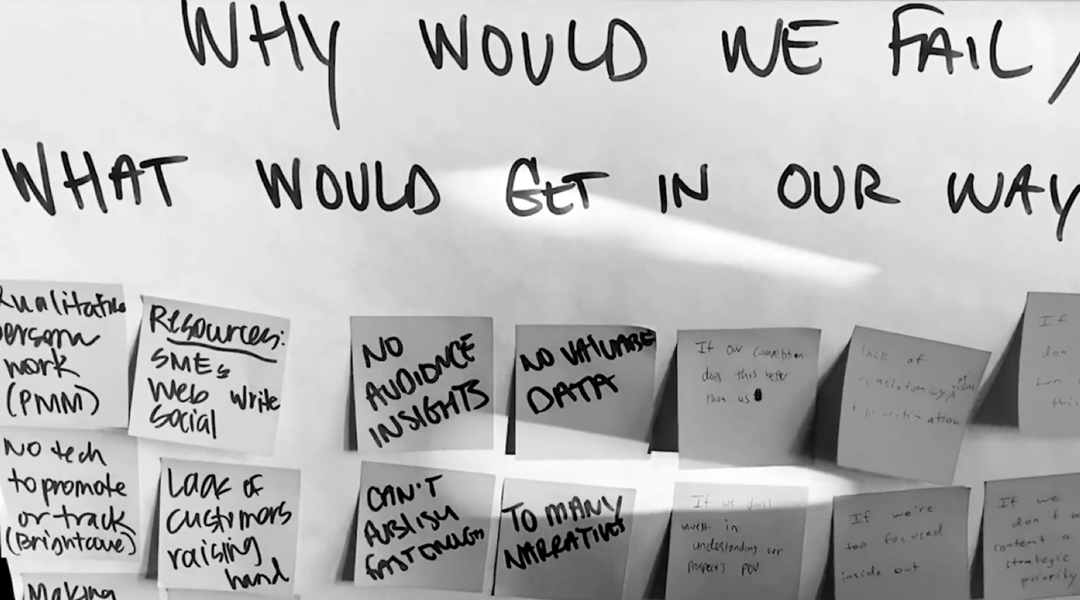 WHY WOULD WE FAIL/
WHAT WOULD GET IN OUR WAY
Qualitative
persona
work
(PMM)
Resources:
SMEs
Web write
Social
NO
AUDIENCE
INSIGHTS
NO VALUABLE
DATA
If our competition
does this better
than us
lack of
consistency
If
don
this
NO tech
to promote
or track
(Brightcove)
Lack of
customers
raising
hand
CAN'T
PUBLISH
FAST ENOUGH
TO MANY
NARRATIVES
If we don't
invest in
understanding our
Prospects POV
If we're
too focused
inside out
If we
don't
content a
strategic
priority
Making